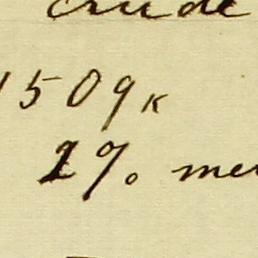 crude
1509k
1% me